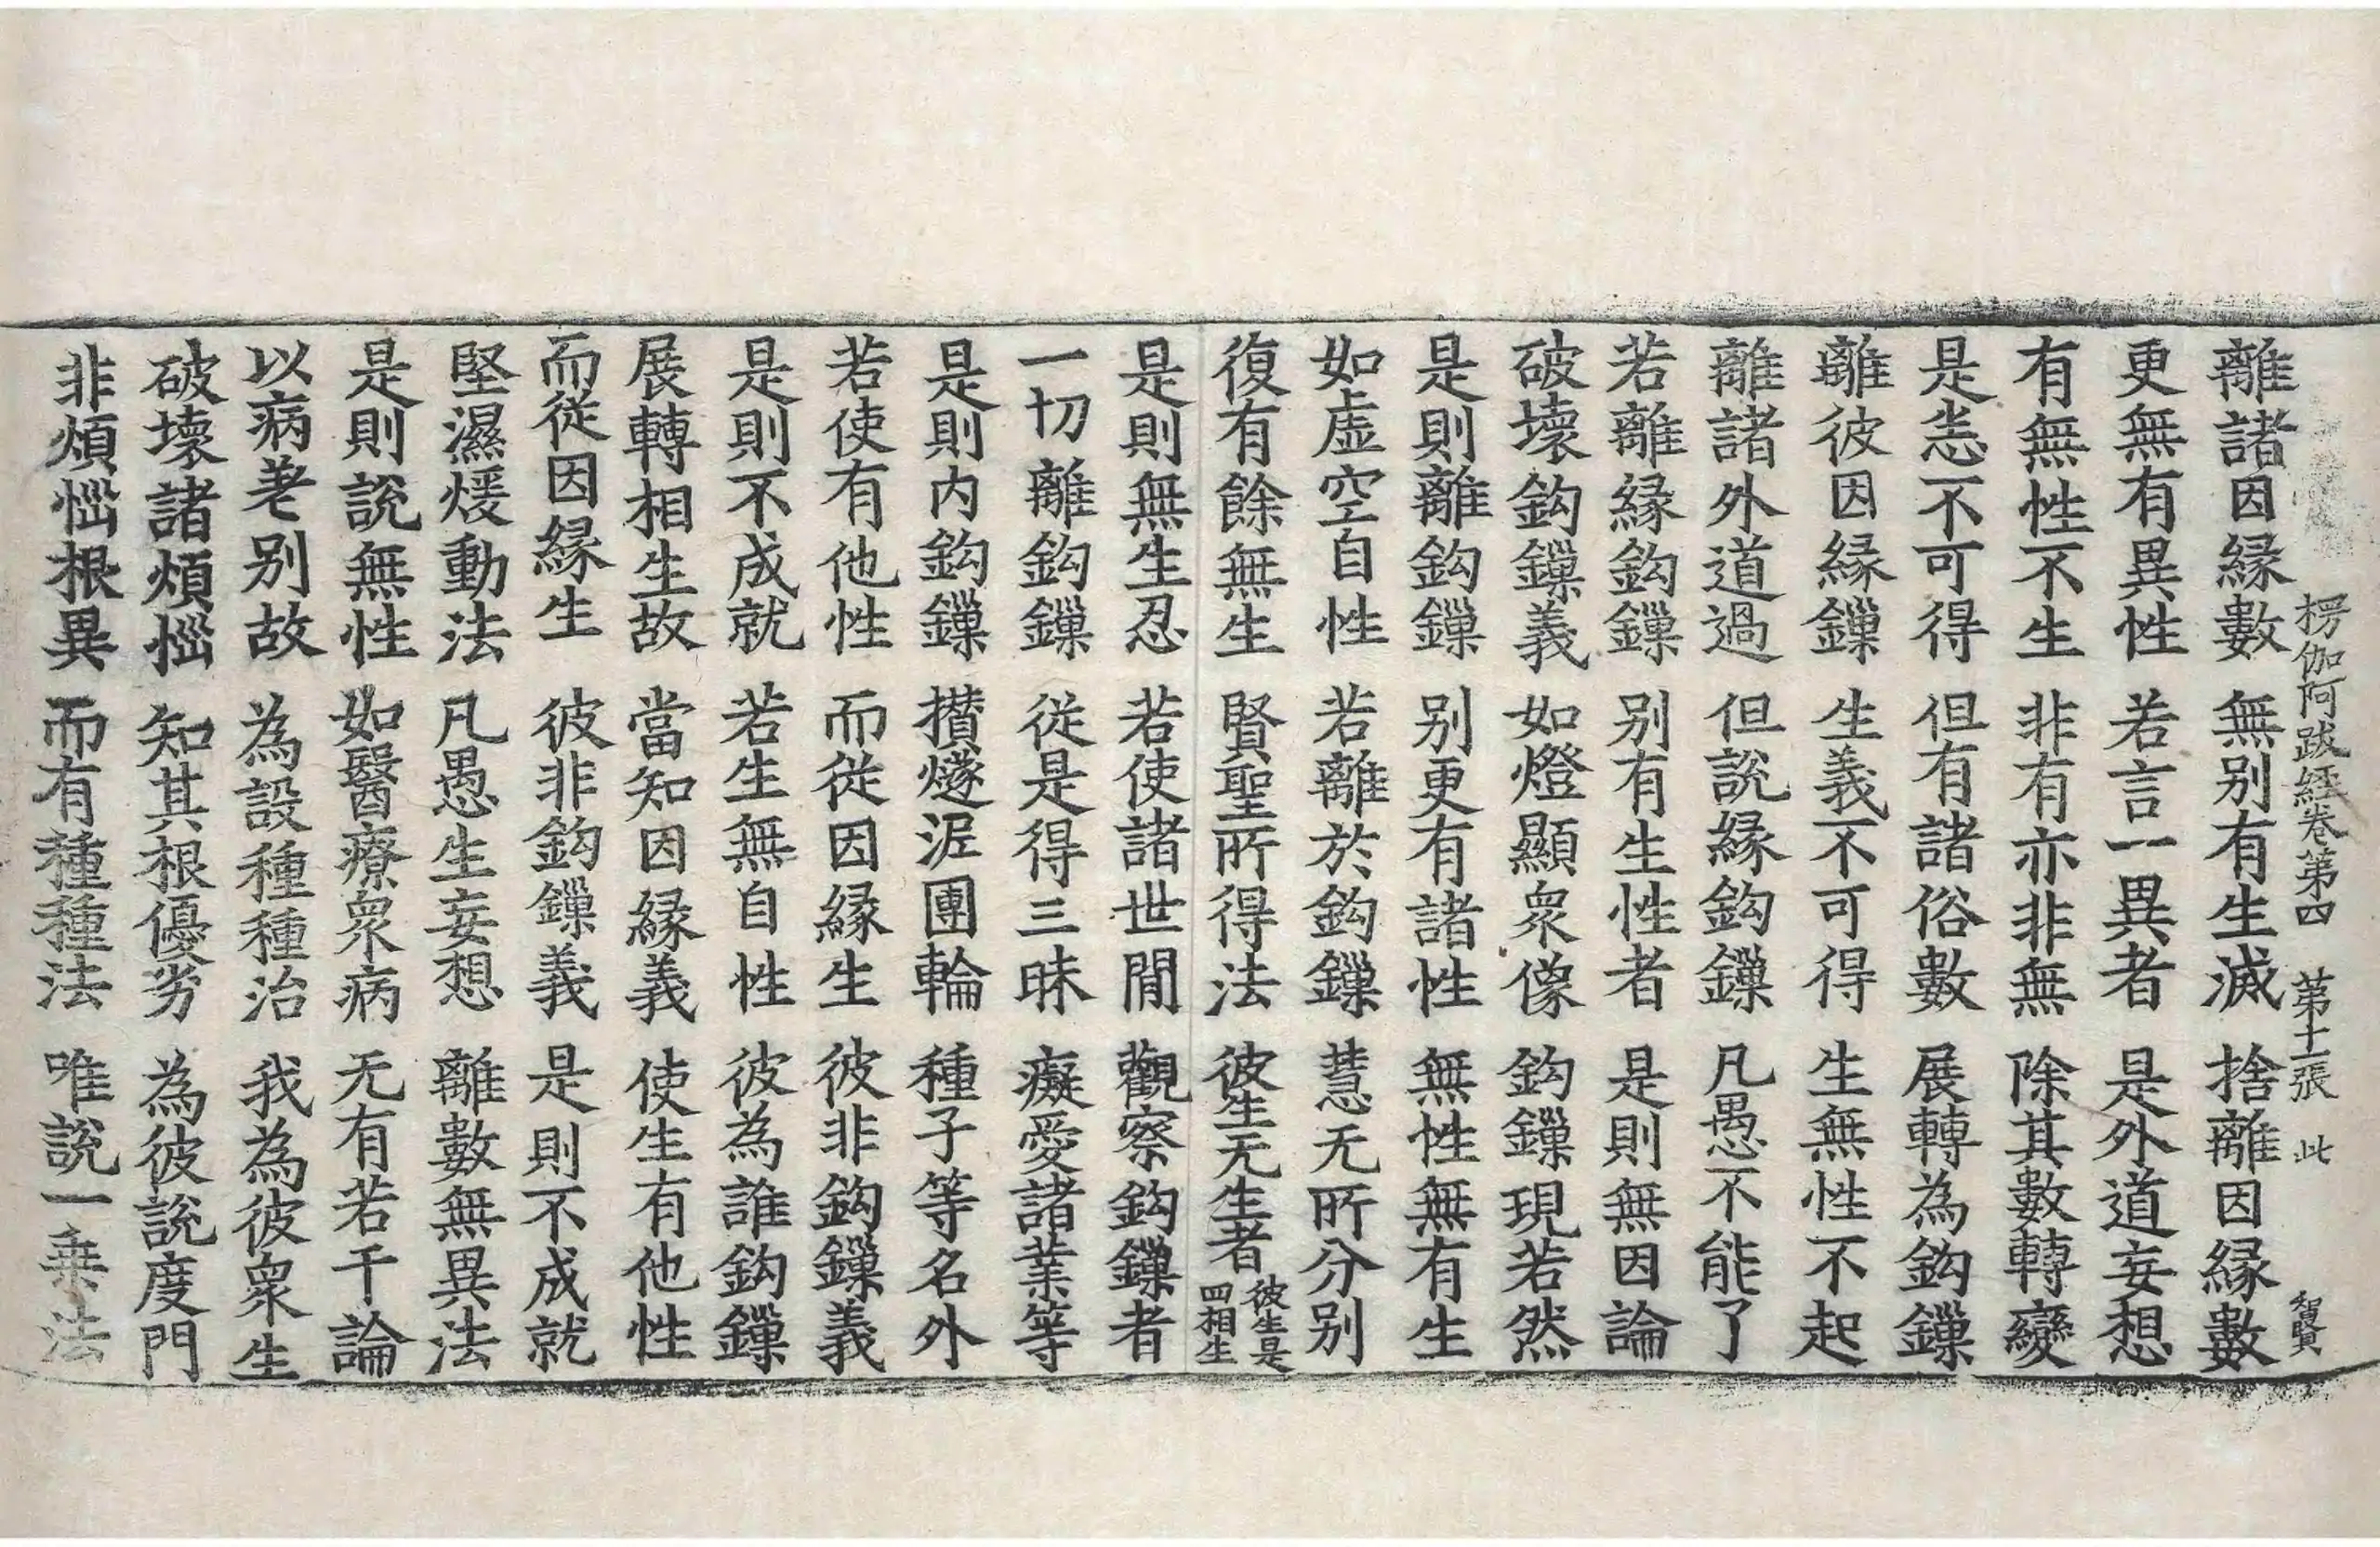 楞伽阿跋經卷第四 第十二張 此 智賢
離諸因緣數 無別有生滅 捨離因緣數
更無有異性 若言一異者 是外道妄想
有無性不生 非有亦非無 除其數轉變
是悉不可得 但有諸俗數 展轉為鈎鏁
離彼因緣鏁 生義不可得 生無性不起
離諸外道過 但說緣鈎鏁 凡愚不能了
若離緣鈎鏁 別有生性者 是則無因論
破壞鈎鏁義 如燈顯眾像 鈎鏁現若然
是則離鈎鏁 別更有諸性 無性無有生
如虛空自性 若離於鈎鏁 慧无所分別
復有餘無生 賢聖所得法 彼生无生者 彼生是四相生
是則無生忍 若使諸世間 觀察鈎鏁者
一切離鈎鏁 從是得三昧 癡愛諸業等
是則內鈎鏁 攢燧泥團輪 種子等名外
若使有他性 而從因緣生 彼非鈎鏁義
是則不成就 若生無自性 彼為誰鈎鏁
展轉相生故 當知因緣義 使生有他性
而從因緣生 彼非鈎鏁義 是則不成就
堅濕煖動法 凡愚生妄想 離數無異法
是則說無性 如醫療眾病 无有若干論
以病差別故 為設種種治 我為彼眾生
破壞諸煩惱 知其根優劣 為彼說度門
非煩惱根異 而有種種法 唯說一乘法